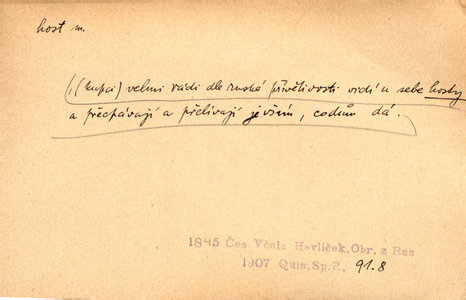 host m.
„(kupci) velmi rádi dle ruské přívětivosti vidí u sebe hosty
a přechávají a přelívají je vším, co dům dá.
1845 Čes. Včela Havlíček, Obr. z Rus
1907 Quis, Sp. 2. 91.8